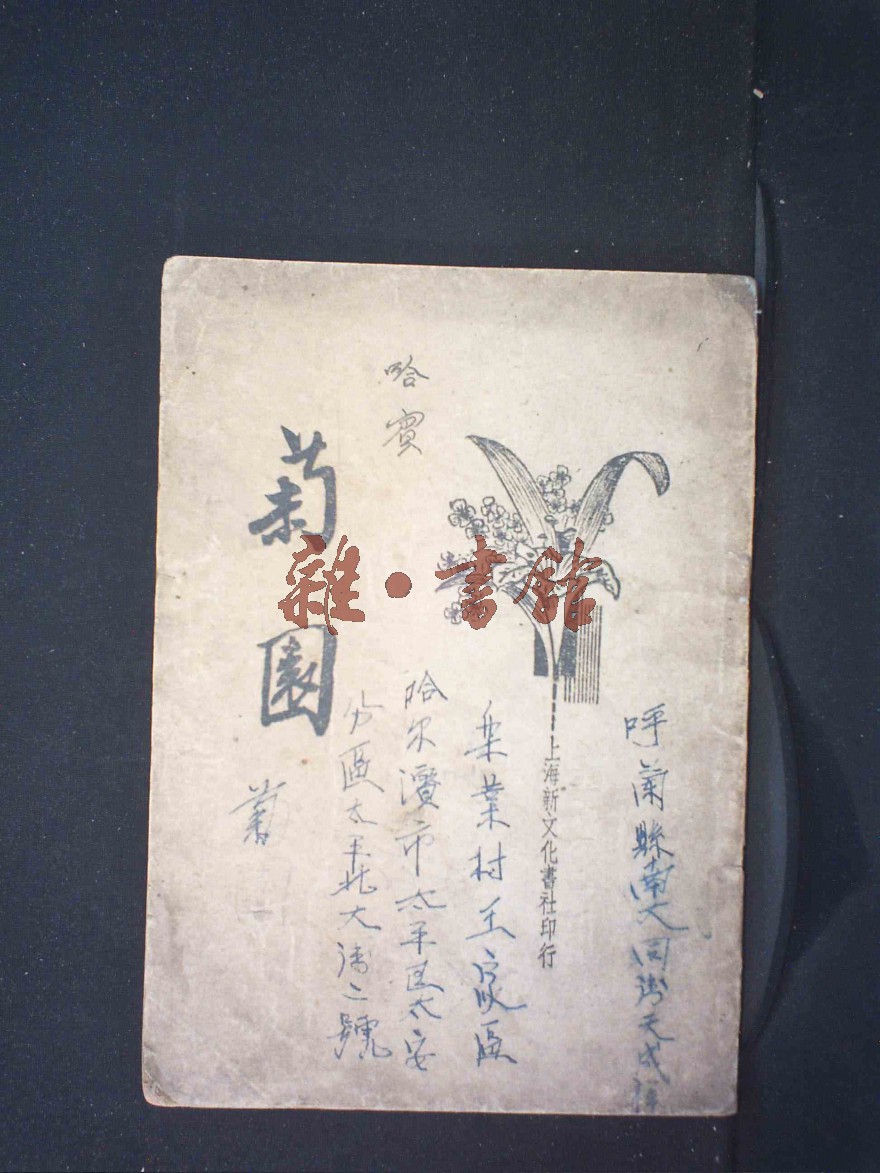 呼蘭縣南大同街天成
上海新文化書社印行
業村王家區
哈尔濱市太平区太安
分區太平北大街二號
哈賓
菊園
雜•書館